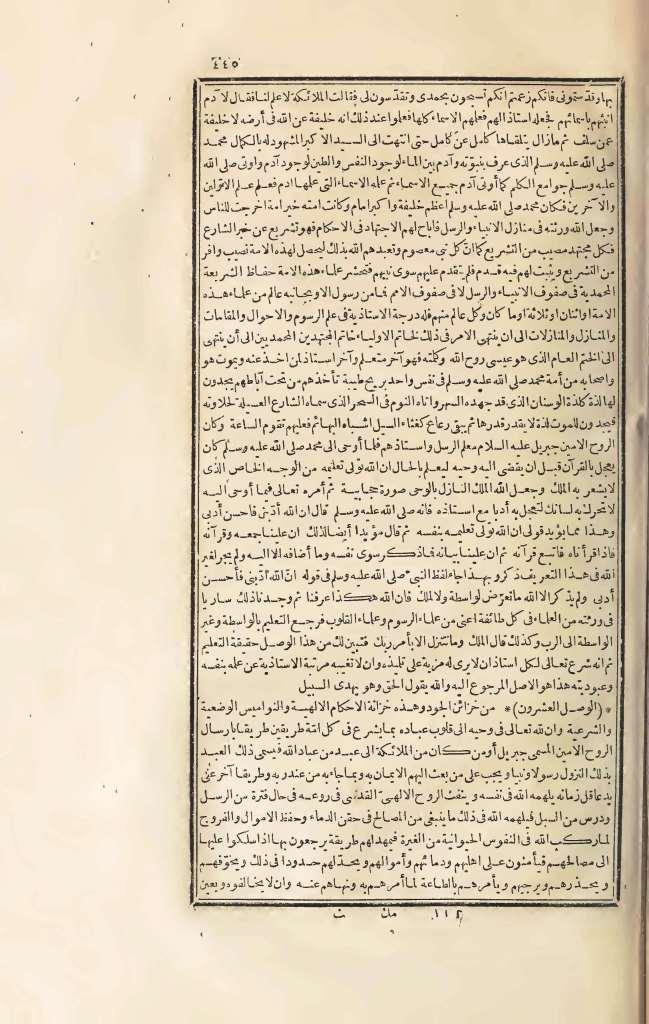 ٤٤٥
بها وقد سبحونى فانكم زعمتم انكم تسبحون بحمدى وتقدّسون لى فقالت الملائكة لا علم لنا فقال لآدم
انبئهم بأسمائهم فجعله استاذا لهم فعلمهم الاسماء كلها فعلموا عند ذلك انه خليفة عن الله فى أرضه لا خليفة
عمن سلف ثم ما زال يتلقاها كامل عن كامل حتى انتهت الى السيد الاكبر المشهود له بالكمال محمد
صلى الله عليه وسلم الذى عرف بنبوّته وآدم بين الماء لوجود النفس والطين لوجود آدم واوتى صلى الله
عليه وسلم جوامع الكلم كما أوتى آدم جميع الاسماء ثم علمه الاسماء التى علمها آدم فعلم علم الاوّلين
والآخرين فكان محمد صلى الله عليه وسلم اعظم خليفة واكبر امام وكانت امته خير امة اخرجت للناس
وجعل الله ورثته فى منازل الانبياء والرسل فأباح لهم الاجتهاد فى الاحكام فهو تشريع عن خبر الشارع
فكل مجتهد مصيب من التشريع كما انّ كل نبى معصوم وتعبدهم الله بذلك ليحصل لهذه الامة نصيب وافر
من التشريع ويثبت لهم فيه قدم فلم يتقدم عليهم سوى نبيهم فتحشر علماء هذه الامة حفاظ الشريعة
المحمدية فى صفوف الانبياء والرسل لا فى صفوف الامم فما من رسول الا وبجانبه عالم من علماء هذه
الامة او اثنان او ثلاثة او ما كان وكل عالم منهم فله درجة الاستاذية فى علم الرسوم والاحوال والمقامات
والمنازل والمنازلات الى ان ينتهى الامر فى ذلك لخاتم الاولياء خاتم المجتهدين المحمديين الى أن ينتهى
الى الختم العام الذى هو عيسى روح الله وكلمته فهو آخر متعلم وآخر استاذ لمن اخذ عنه ويموت هو
واصحابه من أمة محمد صلى الله عليه وسلم فى نفس واحد بريح طيبة تأخذهم من تحت آباطهم يجدون
لها لذة كلذة الوسنان الذى قد جهده السهر واتاه النوم فى السحر الذى سماه الشارع العسيلة لحلاوته
فيجدون للموت لذة لا يقدر قدرها ثم يبقى رعاع كغثاء السيل اشباه البهائم فعليهم تقوم الساعة وكان
الروح الامين جبريل عليه السلام معلم الرسل واستاذهم فلما أوحى الى محمد صلى الله عليه وسلم كان
يعجل بالقرآن قبل ان يقضى اليه وحيه ليعلم بالحال ان الله تولى تعليمه من الوجه الخاص الذى
لا يشعر به الملك وجعل الله الملك النازل بالوحى صورة حجابية ثم أمره تعالى فيما أوحى اليه
لا تحرّك به لسانك لتعجل به أدبا مع استاذه فانه صلى الله عليه وسلم قال ان الله أدّبنى فأحسن أدبى
وهذا مما يؤيد قولى ان الله تولى تعليمه بنفسه ثم قال مؤيدا أيضا لذلك ان علينا جمعه وقرآنه
فاذا قرأناه فاتبع قرآنه ثم ان علينا بيانه فما ذكر سوى نفسه وما أضافه الا اليه ولم يجر لغير
الله فى هذا التعريف ذكر وبهذا جاء لفظ النبى صلى الله عليه وسلم فى قوله انّ الله أدّبنى فأحسن
أدبى ولم يذكر الا الله ما تعرّض لواسطة ولا لملك فان الله هكذا عرفنا ثم وجدنا ذلك ساريا
فى ورثته من العلماء فى كل طائفة اعنى من علماء الرسوم وعلماء القلوب فرجع التعليم بالواسطة وغير
الواسطة الى الرب وكذلك قال الملك وما نتنزل الا بأمر ربك فتبين لك من هذا الوصل حقيقة التعليم
ثم انه شرع تعالى لكل استاذ ان لا يرى له مزية على تلميذه وان لا تغيبه مرتبة الاستاذية عن علمه بنفسه
وعبوديته هذا هو الاصل المرجوع اليه والله يقول الحق وهو يهدى السبيل
* (الوصل العشرون) * من خزائن الجود وهذه خزانة الاحكام الالهية والنواميس الوضعية
والشرعية وان لله تعالى فى وحيه الى قلوب عباده بما يشرع فى كل امّة طريقين طريقا بارسال
الروح الامين المسمى جبريل أو من كان من الملائكة الى عبد من عباد الله فيسمى ذلك العبد
بذلك النزول رسولا ونبيا ويجب على من بعث اليهم الايمان به وبما جاء به من عند ربه وطريقا آخر على
يد عاقل زمانه يلهمه الله فى نفسه وينفث الروح الالهىّ القدسى فى روعه فى حال فترة من الرسل
ودرس من السبل فيلهمه الله فى ذلك ما ينبغى من المصالح فى حقن الدماء وحفظ الاموال والفروج
لما ركب الله فى النفوس الحيوانية من الغيرة فيمهد لهم طريقة يرجعون بها اذا سلكوا عليها
الى مصالحهم فيأمنون على اهليهم ودمائهم وأموالهم ويحدّ لهم حدودا فى ذلك ويخوّفهم
ويحذرهم ويرجيهم ويأمرهم بالطاعة لما أمرهم به ونهاهم عنه وان لا يخالفوه ويعين
١١٢ مك ث